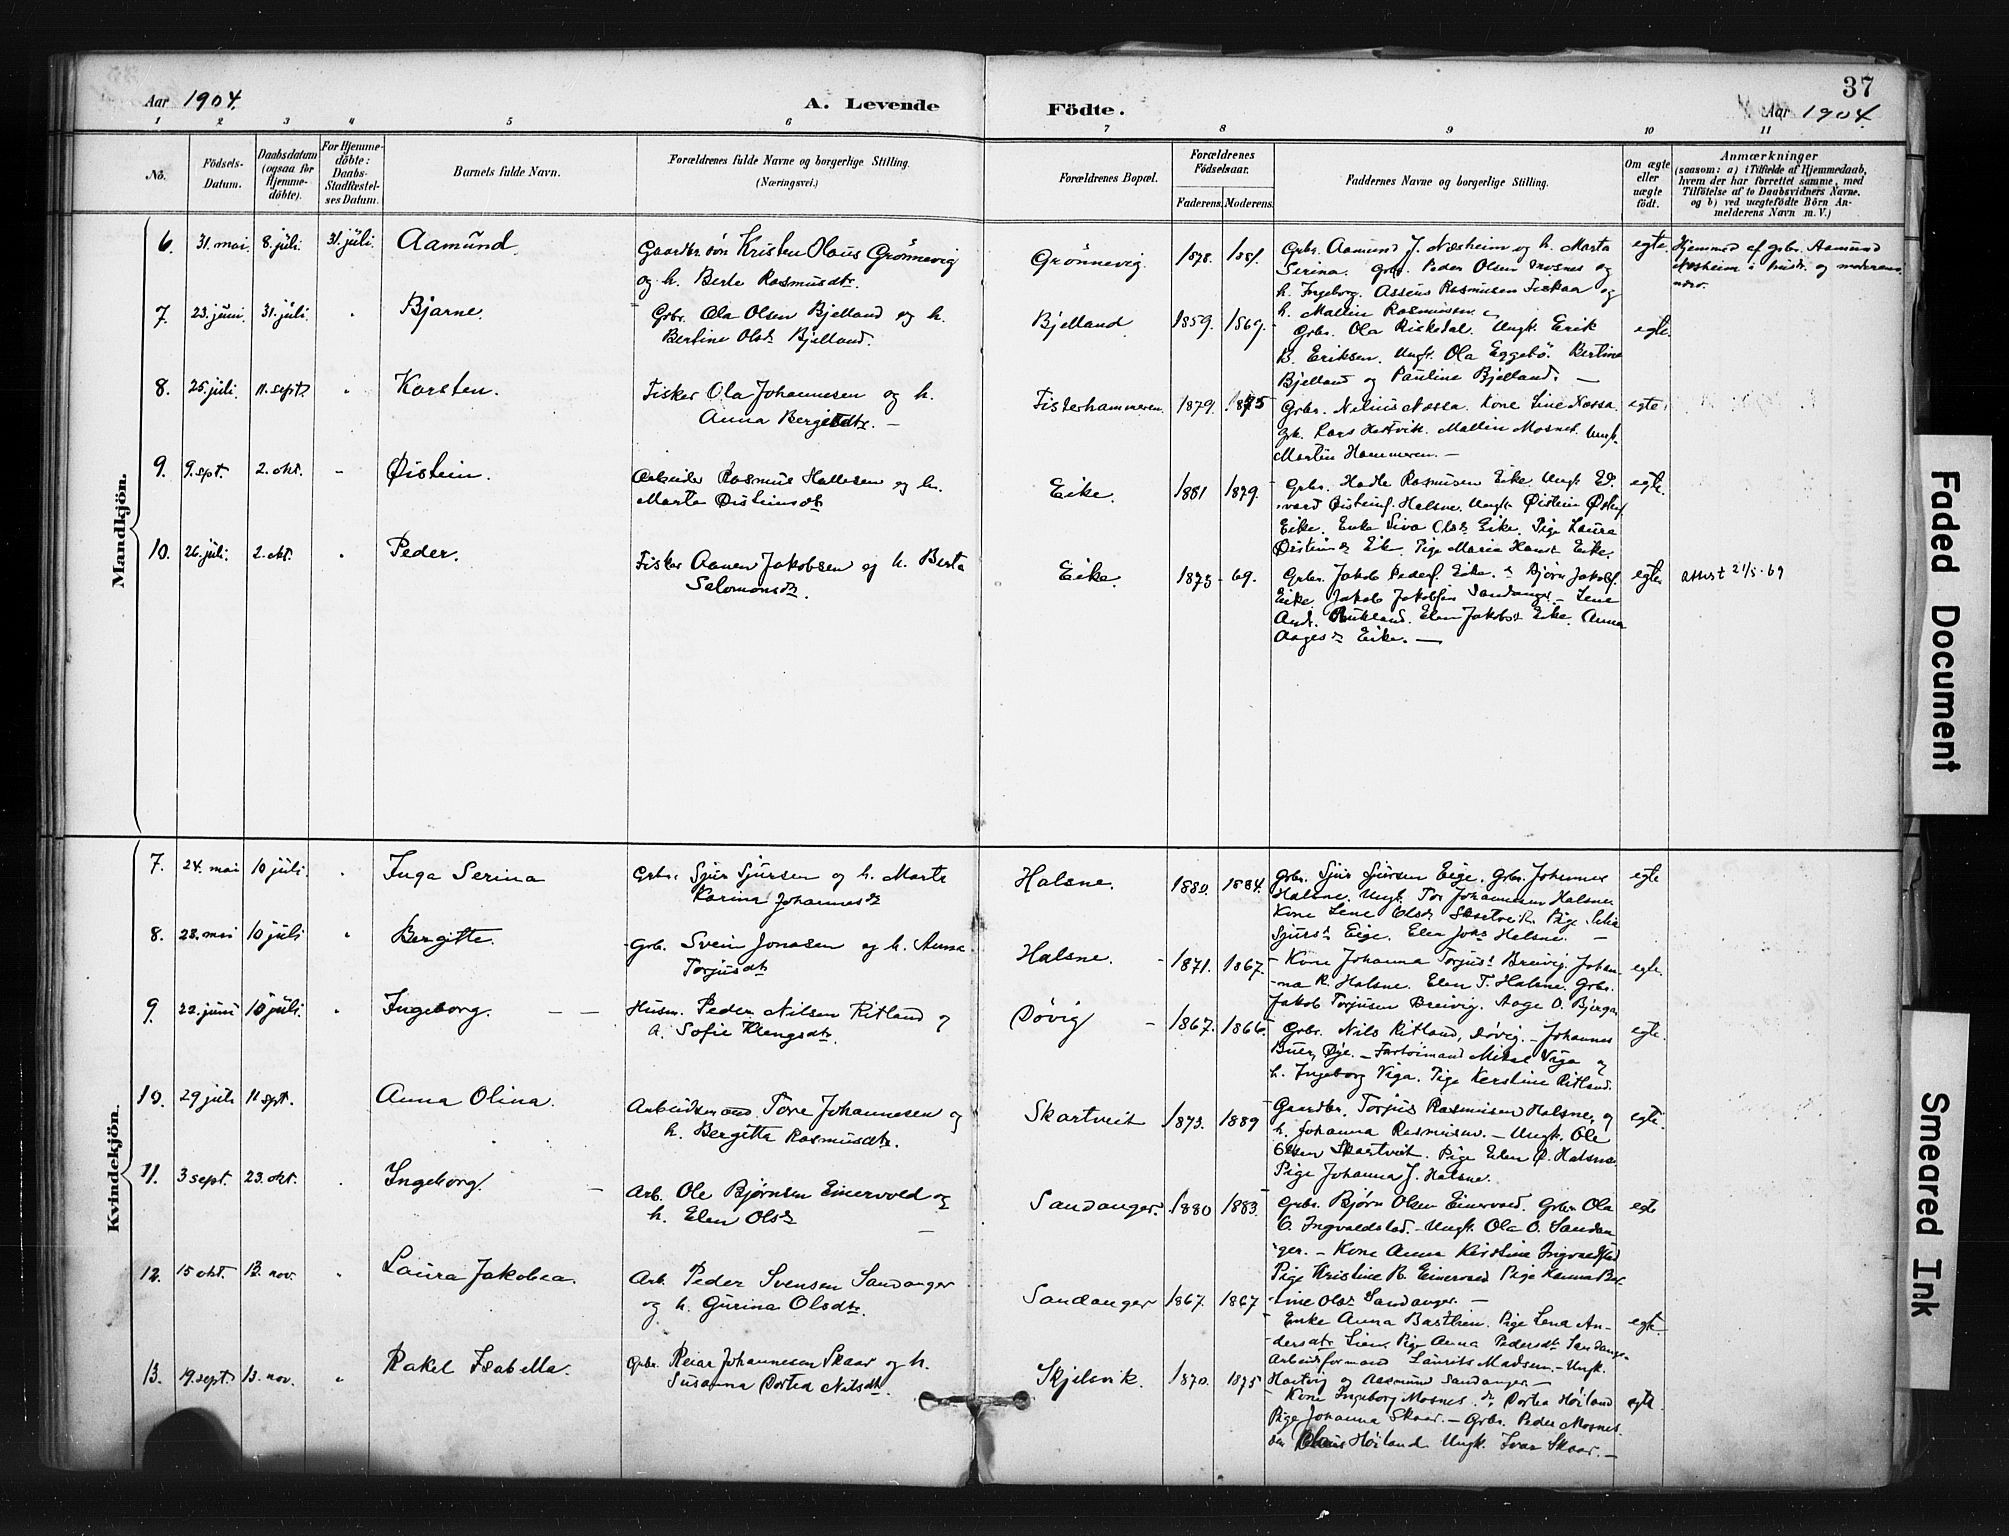 37
Aar 1904.
A. Levende Födte.
Aar 1904.
1 2 3 4 5 6 7 8 9 10 11
No. Födsels-Datum. Daabsdatum (ogsaa for Hjemmedöbte). For Hjemmedöbte: Daabs-Stadfæstelses Datum. Barnets fulde Navn. Forældrenes fulde Navne og borgerlige Stilling. (Næringsvei.) Forældrenes Bopæl. Forældrenes Födselsaar. Faderens. Moderens. Faddernes Navne og borgerlige Stilling. Om ægte eller uægte födt. Anmærkninger (saasom: a) i Tilfælde af Hjemmedaab, hvem der har forrettet samme, med Tilföielse af to Daabsvidners Navne, og b) ved uægtefödte Börn Anmelderens Navn m. V.)
Mandkjön.
6. 31. mai 8. juli. 31. juli. Aamund. Gaardbr. søn Kristen Olaus Grønnevig
og h. Berte Rasmusdtr.
Grønnevig. 1878. 1881. Grbr. Aamund J. Næsheim og h. Marta
Serina. Grbr. Peder Olsen Mosnes og
h. Ingeborg. Asseus Rasmusen Fiskaa og
h. Mallin Rasmusen.
egte. Hjemmed. af grbr. Aamund
Næsheim i hustr. og moderens
nærv.
7. 23. juni. 31. juli. Bjarne. Grbr. Ola Olsen Bjelland og h.
Bertine Olsdr Bjelland.
Bjelland 1859. 1869. Grbr. Ola Riskedal. Ungk. Erik
B. Eriksen. Ungk. Ola Eggebö. Bertine
Bjelland og Pauline Bjelland. —
egte.
8. 25. juli. 11. sept. Karsten. Fisker Ola Johannesen og h.
Anna Bergitedtr. —
Fisterhammeren. 1879. 1875 Grbr. Nilius Næssa. Kone Line Næssa.
Gbr. Lars Hestvik. Mallin Mosnes. Ungk.
Martin Hammeren. —
egte.
9. 9. sept. 2. okt. Øistein. Arbeider Rasmus Hallesen og h.
Marta Øisteinsdtr
Eike. 1881 1879. Grbr. Hadle Rasmusen Eike. Ungk. Ed-
vard Øisteins. Halsne. Ungk. Øistein Østens.
Eike. Enke Siva Olsdr Eike. Pige Laura
Øisteinsdr Eik. Pige Maria Hansdr Eike.
egte.
10. 26. juli. 2. okt. Peder. Fisker Aanen Jakobsen og h. Berta
Salomonsdtr.
Eike. 1875 - 69. Grbr. Jakob Peders. Eike. Bjørn Jakobs.
Eike. Jakob Jakobsen Sandanger. — Lene
And. Aukland. Elen Jakobsdr Eike. Anna
Aagesdr Eike. —
egte attest 21/5-69
Kvindekjön.
7. 24. mai 10 juli. Inga Serina Grbr. Sjur Sjursen og h. Marte
Karina Johannesdtr
Halsne. 1880. 1884. Grbr. Sjur Sjursen Eige. Grbr. Johannes
Halsne. Ungk. Tor Johannesen Halsne.
Kone Lene Olsdr Skartveit. Pige
Sjursdr Eige. Elen Johsdr Halsne. —
egte
8. 28. mai 10 juli Bergitte. Grb. Svein Jonasen og h. Anna
Torjusdtr
Halsne. 1871. 1867. Kone Johanna Torjusdr Breivig. Johan-
na R. Halsne. Elen T. Halsne. Grbr.
Jakob Torjusen Breivig. Aage O. Bjerga.
egte.
9. 22. juni 10 juli. Ingeborg. Husm. Peder Nilsen Ritland og
h. Sofie Klengsdtr.
Døvig 1867. 1866. Grbr. Nils Ritland, Døvig. — Johannes
Buer, Øye. — Fartøimand Mikal Viga og
h. Ingeborg Viga. Pige Kerstine Ritland.
egte.
10. 29 juli 11 sept. Anna Olina. Arbeidsmand Tore Johannesen og
h. Bergitta Rasmusdtr.
Skartveit 1873. 1889 Gaardbr. Torjus Rasmusen Halsne, og
h. Johanna Rasmusen. — Ungk. Ole
Olsen Skartveit. Pige Elen O. Halsne.
Pige Johanna J. Halsne.
egte.
11. 3 sept. 23. okt. Ingeborg. Arb. Ole Bjørnsen Einervold og
h. Elen Olsdr
Sandanger. 1880 1883. Grbr. Bjørn Olsen Einervold. Grbr. Ola
O. Ingvaldstad. — Ungk. Ola O. Sandan-
ger. — Kone Anna Kirstine Ingvaldstad
Pige Kristine B. Einervold Pige Hanna Ber-
tine Olsdr Sandanger. —
egte
12. 15 okt. 13. nov. Laura Jakobea. Arb. Peder Svensen Sandanger
og h. Gurina Olsdtr.
Sandanger 1867. 1867 Enke Anna Basthien. Pige Lena An-
dersdtr Lien. Pige Anna Pedersdtr Sandanger
Arbeidsformand Laurits Madsen. — Ungk.
Hartvig og Aasmund Sandanger. —
egte
13. 19. sept. 13. nov. Rakel Isabella. Grbr. Reiar Johannesen Skaar og h.
Susanna Dortea Nilsdtr.
Skjelsvik. 1870. 1875 Kone Ingeborg Mosnes. do Dortea Høiland
Pige Johanna Skaar. — Grbr. Peder Mosnes.
Claus Høiland Ungk. Ivar Skaar. —
egte.
Faded Document
Smeared Ink